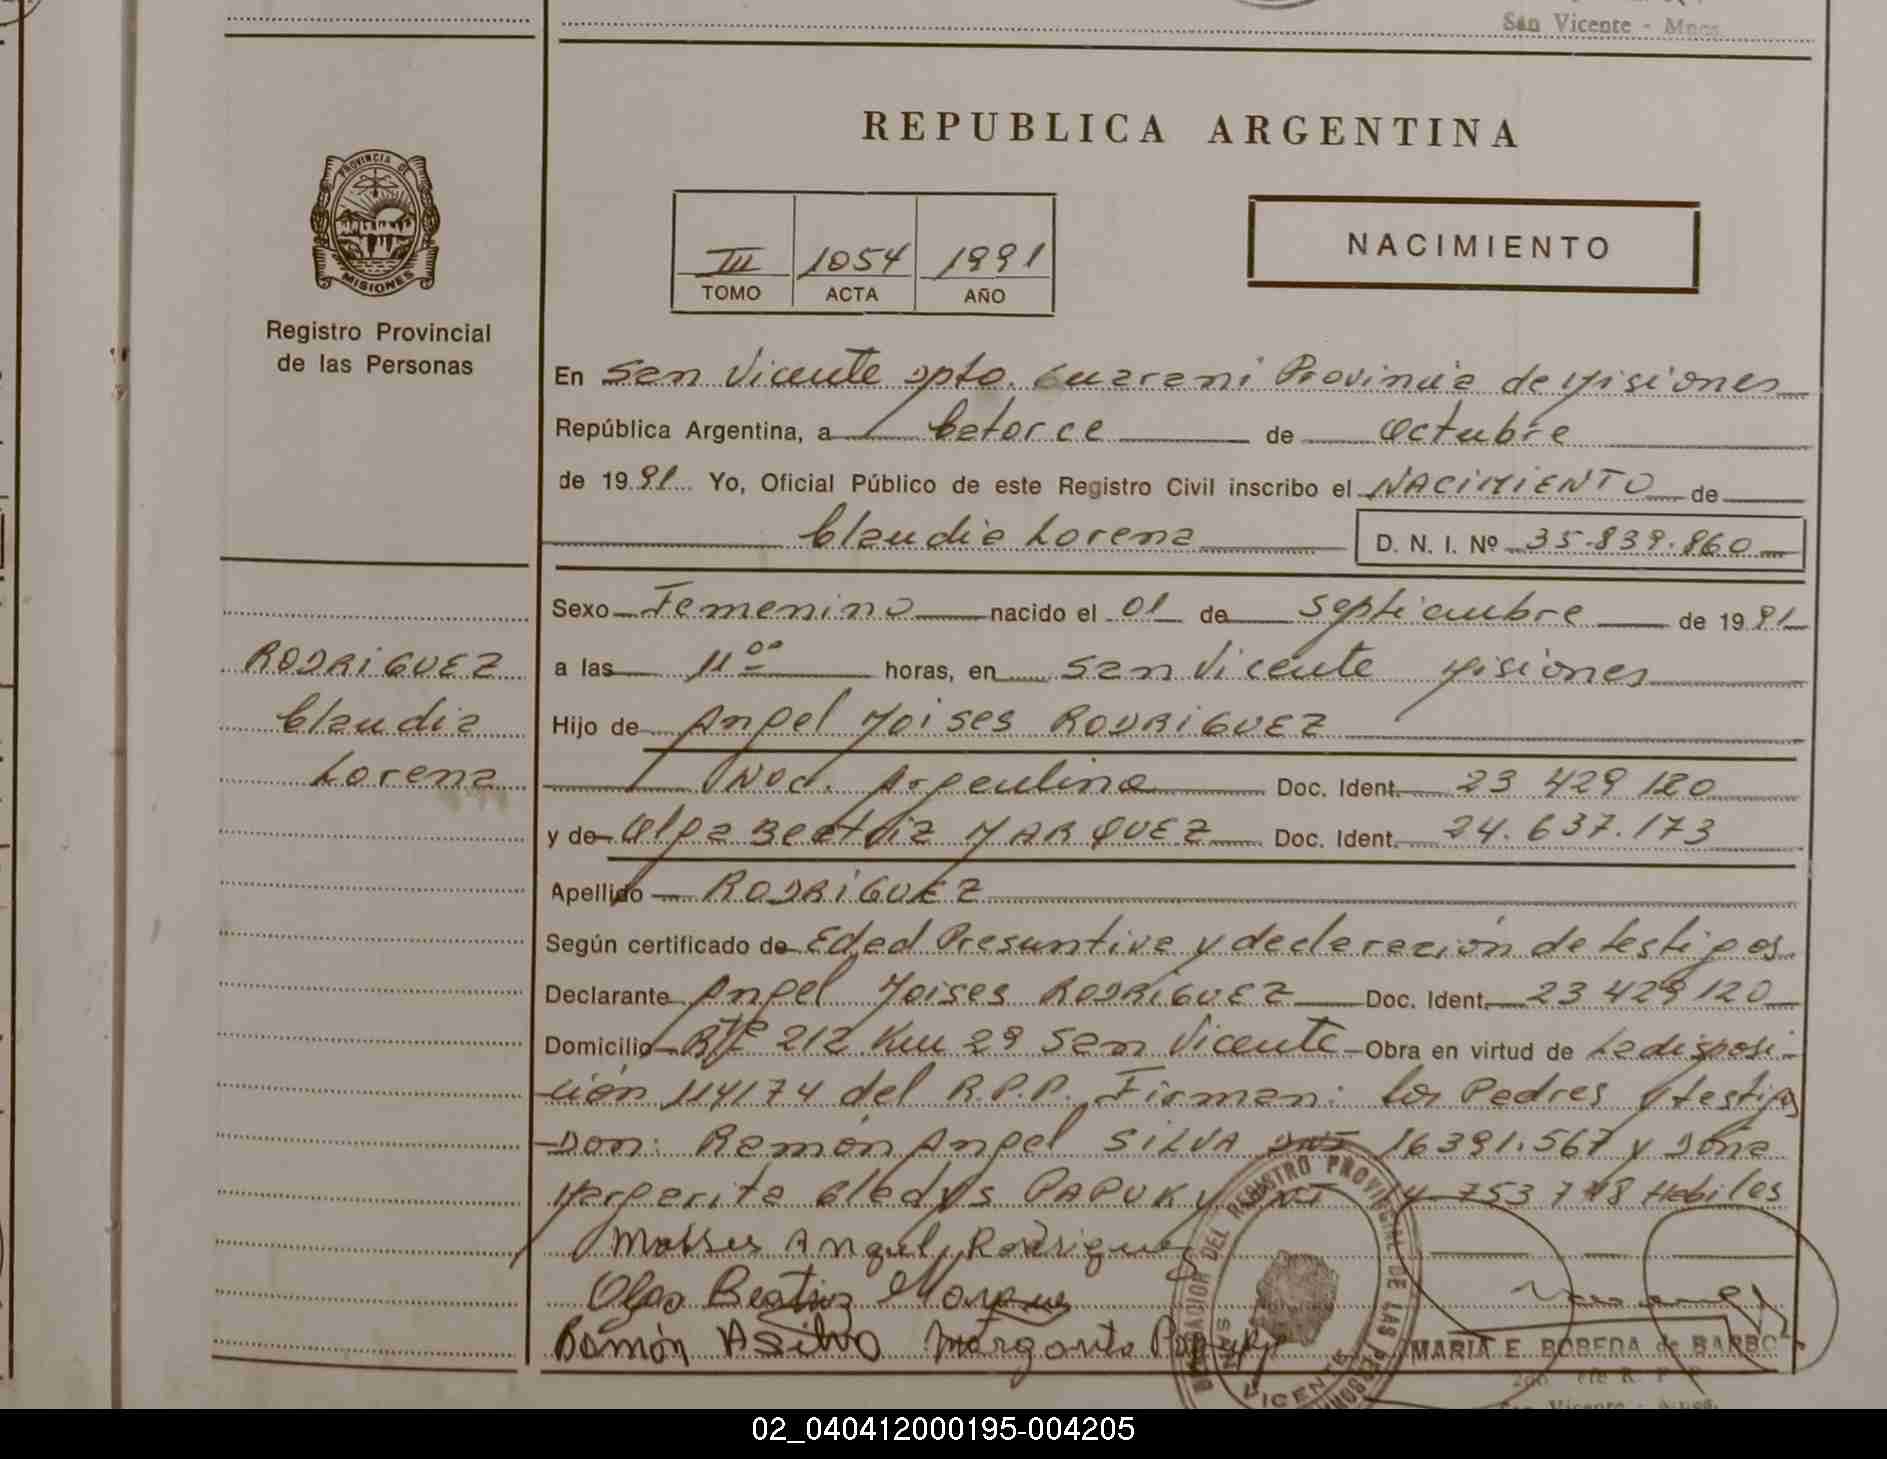 San Vicente - Mnes.
REPUBLICA ARGENTINA
PROVINCIA DE
MISIONES
Registro Provincial
de las Personas
III 1054 1991
TOMO ACTA AÑO
NACIMIENTO
En San Vicente Dpto. Guarani Provincia de Misiones
República Argentina, a Catorce de Octubre
de 1991 Yo, Oficial Público de este Registro Civil inscribo el NACIMIENTO de
Claudia Lorena D. N. I. Nº 35.839.860
Sexo Femenino nacido el 01 de Septiembre de 1991
RODRIGUEZ
Claudia
Lorena
a las 11 00 horas, en San Vicente Misiones
Hijo de Angel Moises RODRIGUEZ
Nac. Argentina Doc. Ident. 23 429 120
y de Olga Beatriz MARQUEZ Doc. Ident. 24.637.173
Apellido RODRIGUEZ
Según certificado de Edad Presuntiva y declaración de testigos
Declarante Angel Moises RODRIGUEZ Doc. Ident. 23 429 120
Domicilio Rta 212 Km 29 San Vicente Obra en virtud de La disposi-
ción 114/74 del R.P.P. Firman: los Padres y testigos
Don: Ramón Angel SILVA DNI 16391.567 y Doña
Margarita Gladys PAPUK y DNI 753 Habiles
Angel Rodrigues
Olga Beatriz Marques
Ramón A Silva Margarita
DEL REGISTRO PROVINCIAL DE LAS PERSONAS
SAN VICENTE
MARIA E. BOBEDA de BARBO
San Vicente - Mnes.
02_040412000195-004205